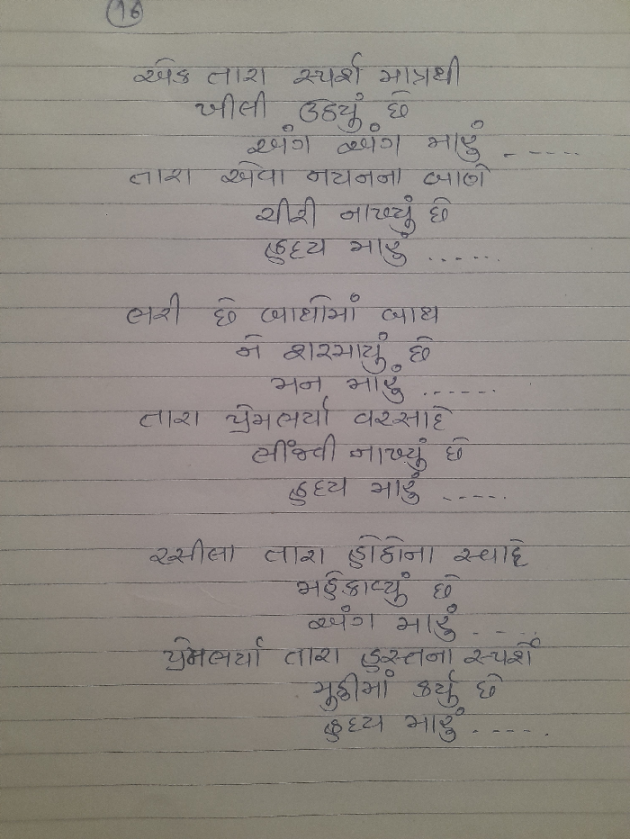 16
એક તારા સ્પર્શ માત્રથી
ખીલી ઉઠયું છે
અંગ અંગ મારું ------
તારા એવા નયનના બાણે
ચીરી નાખ્યું છે
હૃદય મારું ......
ભરી છે બાથોમાં બાથ
ને શરમાયું છે
મન મારું ------
તારા પ્રેમભર્યા વરસાદે
ભીંજવી નાખ્યું છે
હૃદય મારું -----.
રસીલા તારા હોઠોના સ્વાદે
મહેકાવ્યું છે
અંગ મારું -----
પ્રેમભર્યા તારા હસ્તના સ્પર્શે
મુઠ્ઠીમાં કર્યું છે
હૃદય મારું -----.